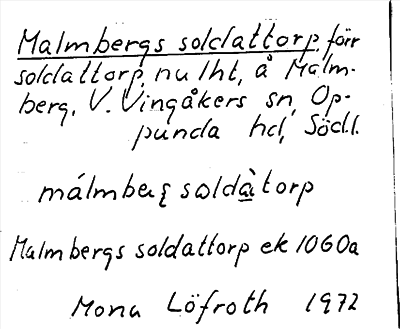 Malmbergs soldattorp, förr
soldattorp, nu lht, å Malm-
berg, V. Vingåkers sn, Op-
punda hd, Södl.
málmbæʀʂ soldàtorp
Malmbergs soldattorp ek 1060a
Mona Löfroth 1972